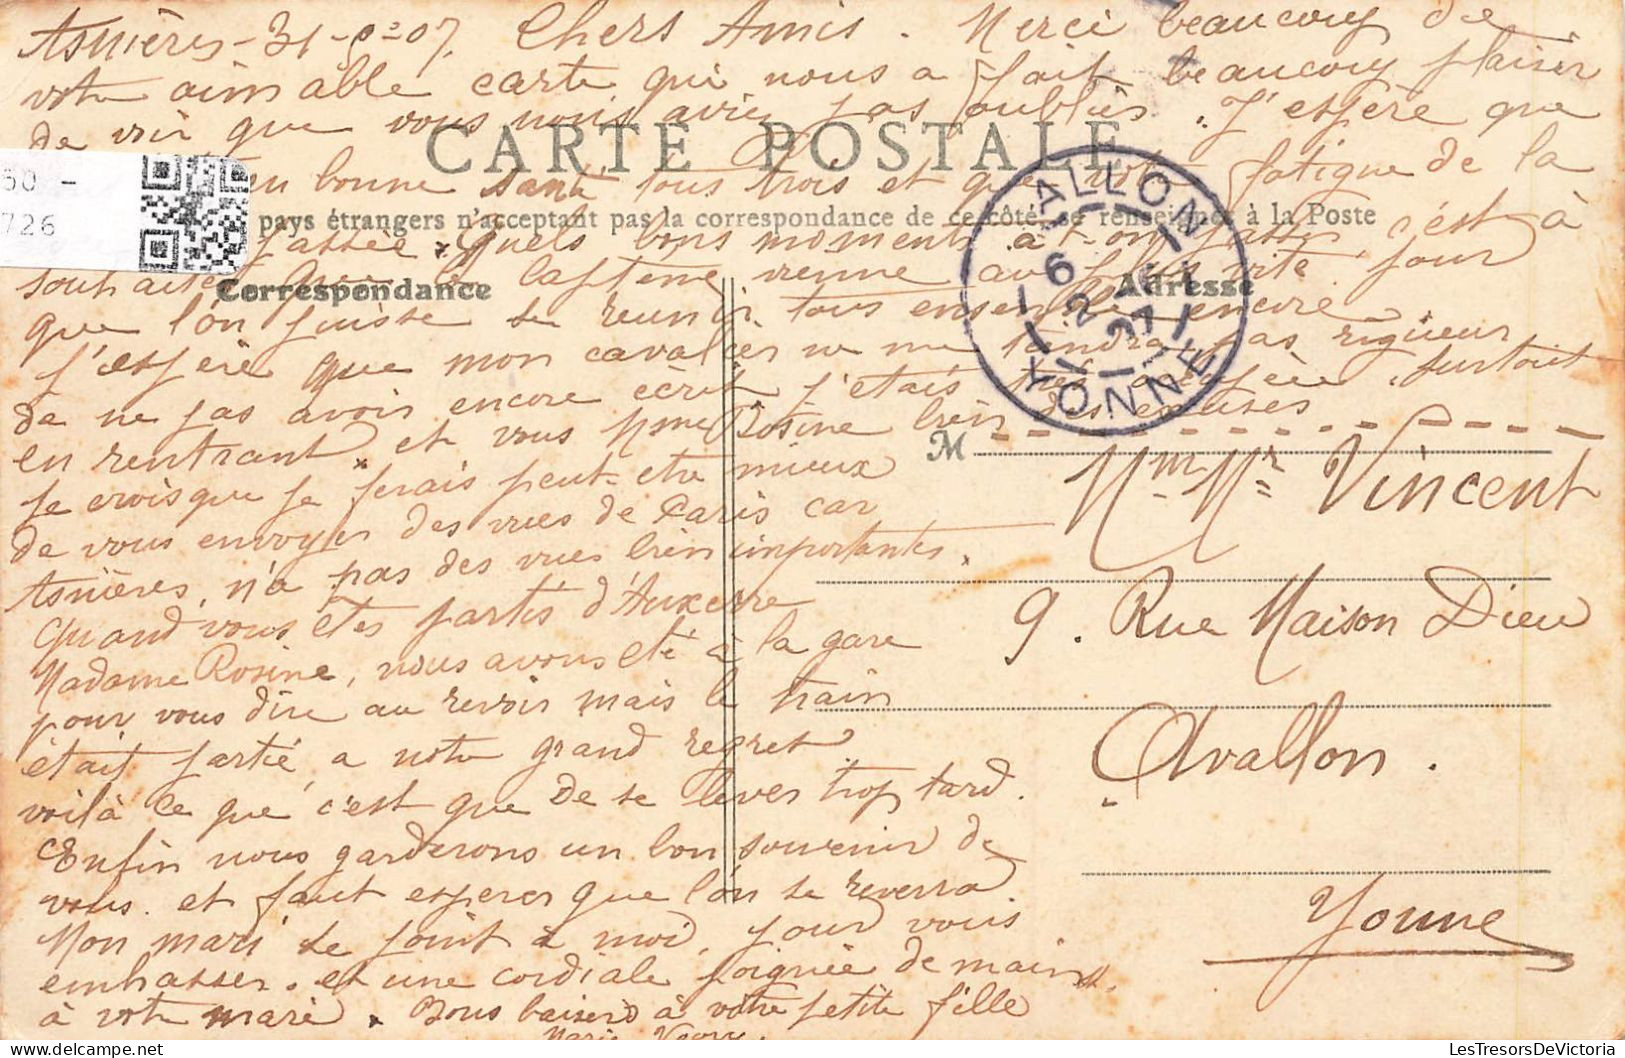 Asnières - 31 - 07. Chers Amis. Merci beaucoup de
votre aimable carte qui nous a fait beaucoup plaisir
de voir que vous nous aviez pas oubliés. J'espère que
CARTE POSTALE
en bonne santé tous trois et que votre fatigue de la
pays étrangers n'acceptant pas la correspondance de ce côté, se renseigner à la Poste
passée. Quels bons moments à c'est à
souhaiter que la vienne au plus vite pour
Correspondance
Adresse
que l'on puisse se reunir tous ensemble encore
j'espère que mon cavalier ne me tiendra pas rigueur
de ne pas avoir encore écrit j'étais très surtout
en rentrant, et vous Mme Rosine bien des excuses
je crois que je ferais peut-etre mieux
de vous envoyer des vues de Paris car
Asnières, n'a pas des vues bien importantes.
Quand vous êtes partis d'Auxerre
Madame Rosine, nous avons été à la gare
pour vous dire au revoir mais le train
était partie a notre grand regret
voilà ce que c'est que de se lever trop tard.
Enfin nous garderons un bon souvenir de
vous. et faut esperer que l'on se reverra
Mon mari se joint à moi, pour vous
embrasser. et une cordiale poignée de mains
à votre mari. Bons baisers à votre petite fille
Marie
AVALLON
6
2
07
YONNE
M
Mme Mr Vincent
9. Rue Maison Dieu
Avallon.
Yonne
50 -
726
LesTresorsDeVictoria